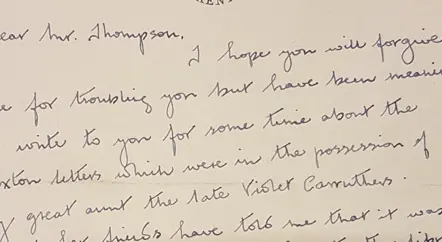 MENT
ear Mr. Thompson,
I hope you will forgive
e for troubling you but have been meanin
write to you for some time about the
xton letters which were in the possession of
y great aunt the late Violet Carruthers.
her friends have told me that it was